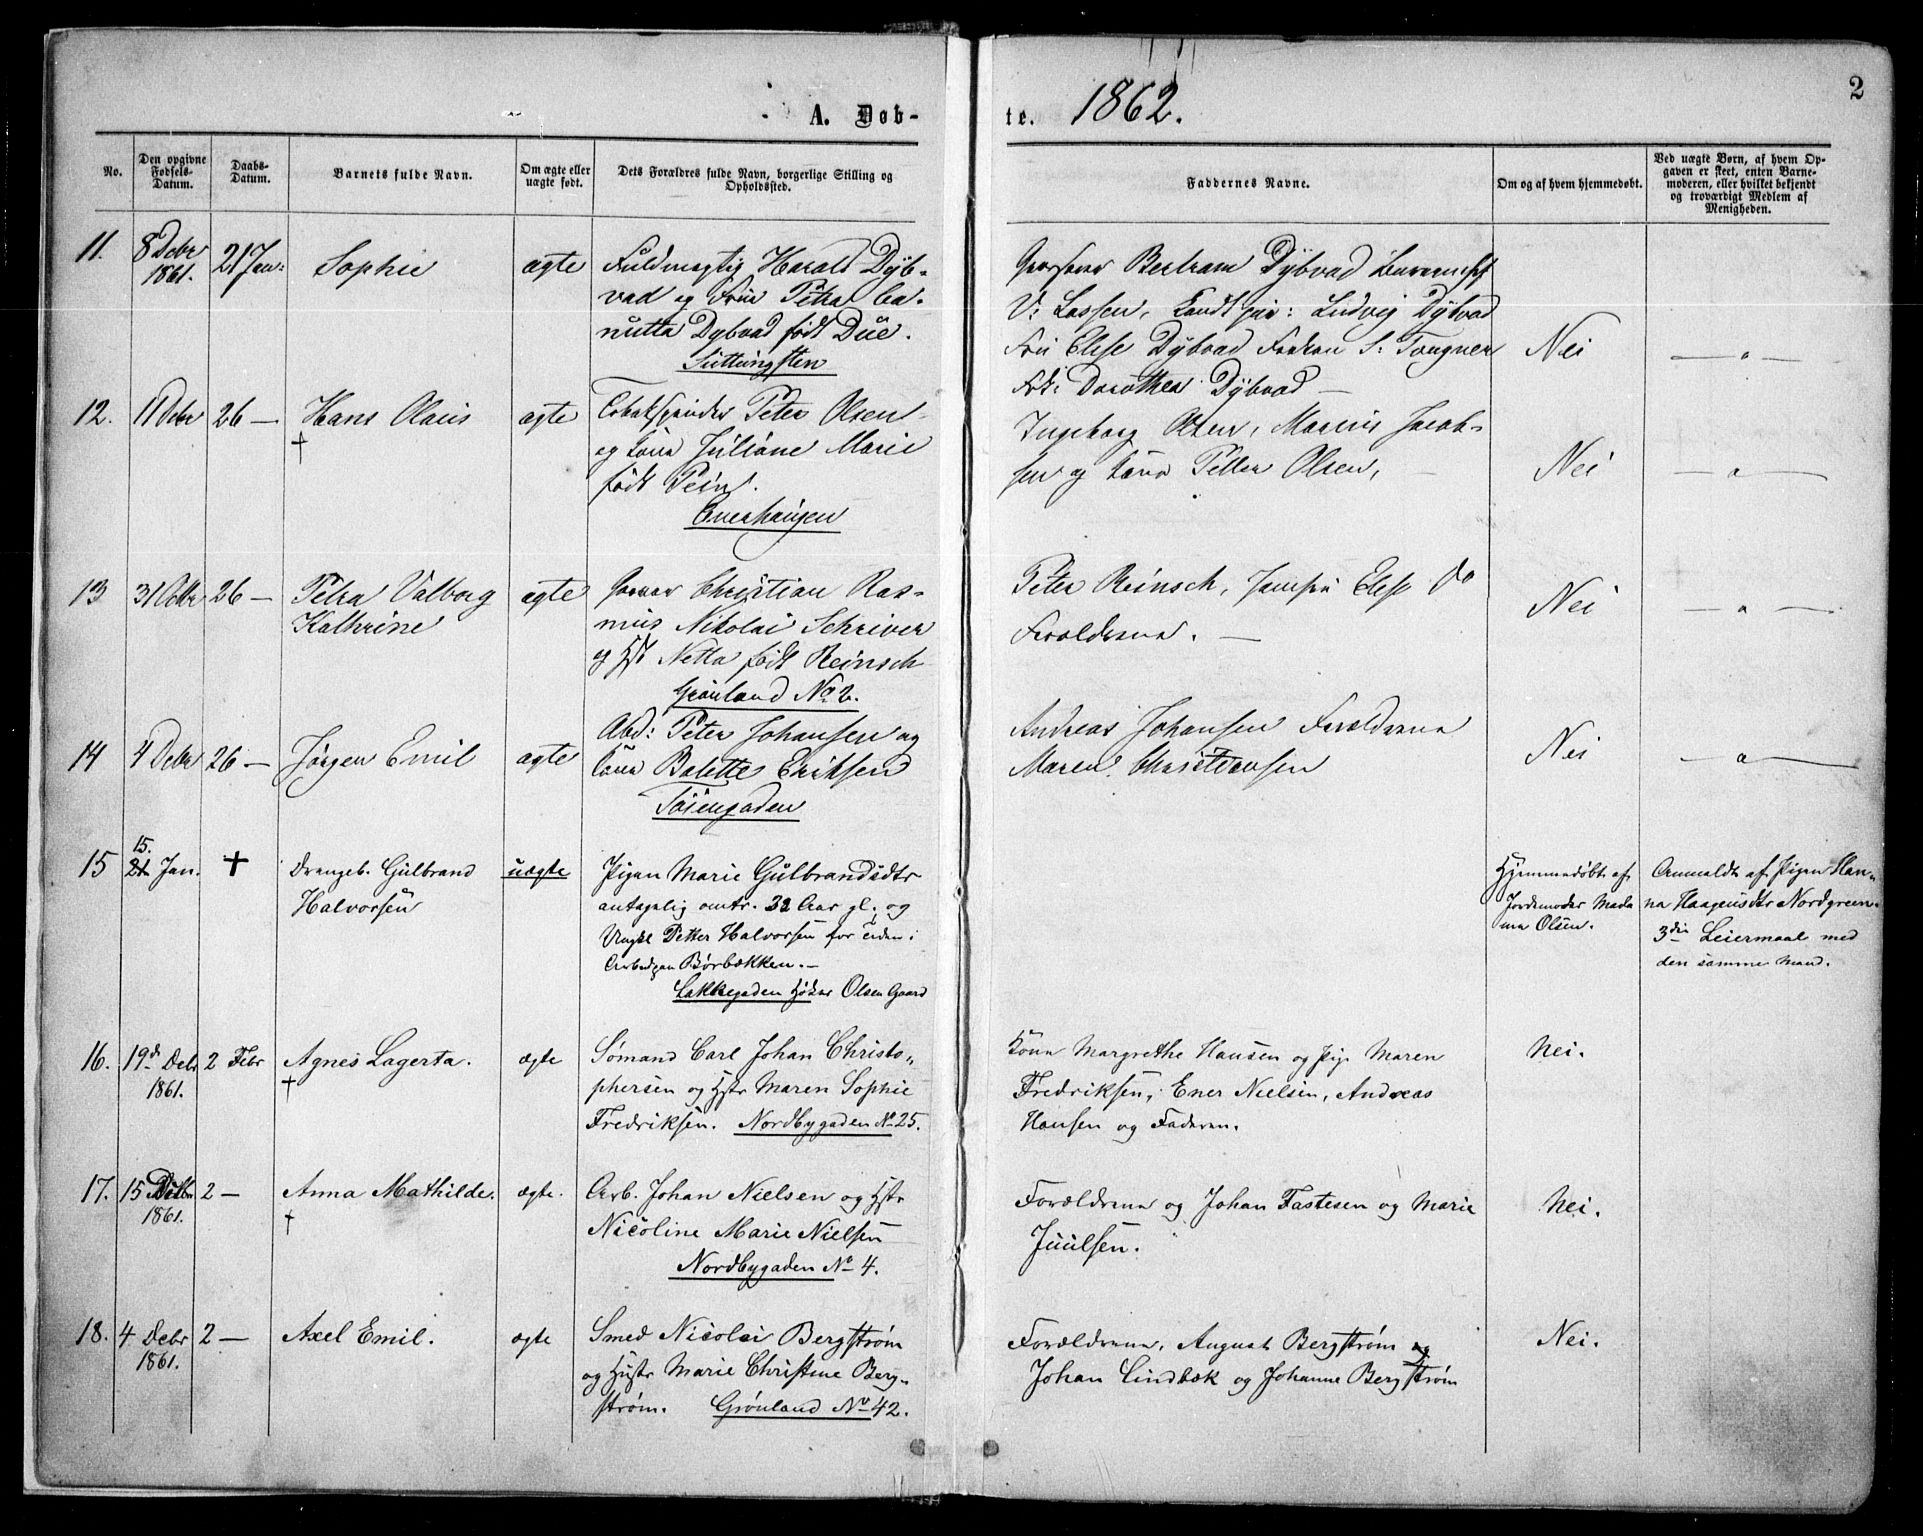 2
A. Døb-
te. 1862.
No.
Den opgivne
Fødsels-
Datum.
Daabs-
Datum.
Barnets fulde Navn.
Om ægte eller
uægte født.
Dets Forældres fulde Navn, borgerlige Stilling og
Opholdssted.
Faddernes Navne.
Om og af hvem hjemmedøbt.
Ved uægte Børn, af hvem Op-
gaven er skeet, enten Barne-
moderen, eller hvilket bekjendt
og troværdigt Medlem af
Menigheden.
11.
8 Debr
1861.
21 Jan:
Sophie
ægte
Fuldmægtig Harald Dÿb-
vad og Frue Petra
nutta Dybvad født Düe.
Bertram Dÿbvad
V: Lassen, Ludvig Dÿbvad
Elise Dÿbvad S: Tougner
Frk: Dorothea Dÿbvad —
Nei
— " —
12.
11 Debr
26 —
Hans Olaus
†
ægte
Peter Olsen
og Kone Juliane Marie
født
Enerhaugen
Ingeborg Olsen, Marius Jacob-
sen og Kone Petter Olsen,
Nei
— " —
13
31 Octbr
26 —
Petra Valborg
Kathrine
ægte
Christian Ras-
mus Nikolai Schriver
og Hst Netta født Reinsch
Grønland No 2.
Peter Reinsch, Jomfru Elise do
Forældrene. —
Nei
— " —
14
4 Debr
26 —
Jørgen Emil
ægte
Abd: Peter Johansen og
Kone Bolette Eriksen
Tøiengaden
Andreas Johansen Forældrene
Maren Christiansen
Nei
— " —
15
15.
21 Jan.
†
Drengeb. Gulbrand
Halvorsen
uægte
Pigen Marie Gulbrandsdtr
antagelig omtr. 32 Aar gl. og
Ungkl Petter Halvorsen for Tiden i
Børbækken. —
Lakkegaden Høker Olsen Gaard
Hjemmedøbt af
Jordemoder Mada
me Olsen.
Anmeldt af Pigen Han-
na Haagensdtr Nordgreen
3die Leiermaal med
den samme Mand.
16.
19d Debr
1861.
2 Febr
Agnes Lagerta.
†
ægte
Sømand Carl Johan Christo-
phersen og Hstr Maren Sophie
Fredriksen. Nordbygaden No 25.
Kone Margrethe Hansen og Pige Maren
Fredriksen, Ener Nielsen, Andreas
Hansen og Faderen.
Nei.
17.
15
1861.
2 —
Anna Mathilde.
†
ægte.
Arb. Johan Nielsen og Hstr
Nicoline Marie Nielsen
Nordbygaden No 4.
Forældrene og Johan Fastesen og Marie
Juulsen.
Nei.
18.
4 Debr
1861.
2 —
Axel Emil.
ægte
Smed Nicolai Bergstrøm
og Hustr Marie Christine Berg-
strøm. Grønland No 42.
Forældrene, August Bergstrøm og
Johan Lindbæk og Johanne Bergstrøm
Nei.